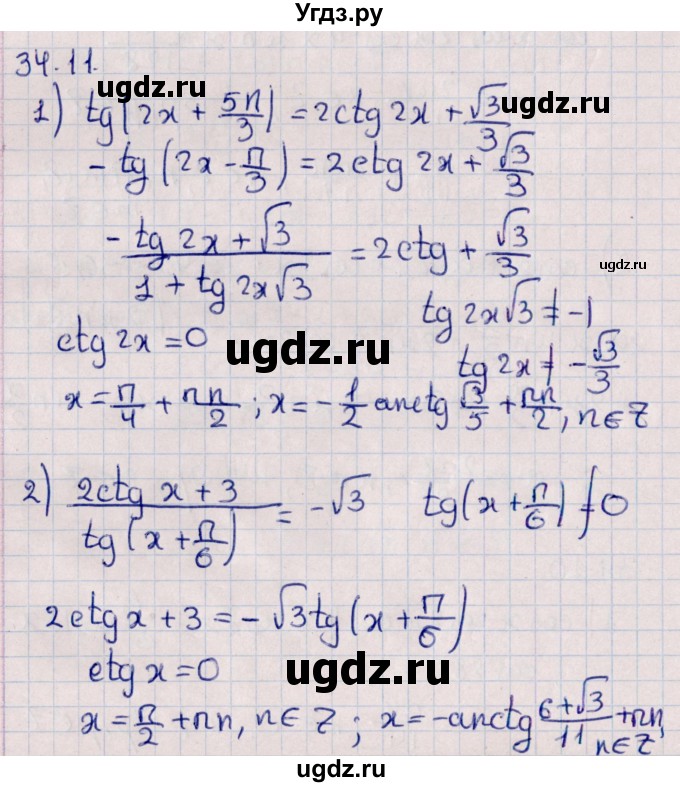 Угдз.ру
34.11.
ugdz.ru ugdz.ru
1) tg(2x + 5π/3) = 2ctg 2x + √3/3
- tg(2x - π/3) = 2ctg 2x + √3/3
(- tg 2x + √3)/(1 + tg 2x√3) = 2ctg + √3/3
ugdz.ru
tg 2x√3 ≠ -1
ctg 2x = 0 ugdz.ru tg 2x ≠ - √3/3
x = π/4 + πn/2 ; x = - 1/2 arcctg √3/5 + πn/2, n ∈ Z
2) (2ctg x + 3)/(tg(x + π/6)) = - √3 tg(x + π/6) ≠ 0
2ctg x + 3 = - √3 tg(x + π/6)
ctg x = 0 ugdz.ru
x = π/2 + πn, n ∈ Z ; x = - arcctg (6 + √3)/11 + πn, n ∈ Z
ugdz.ru